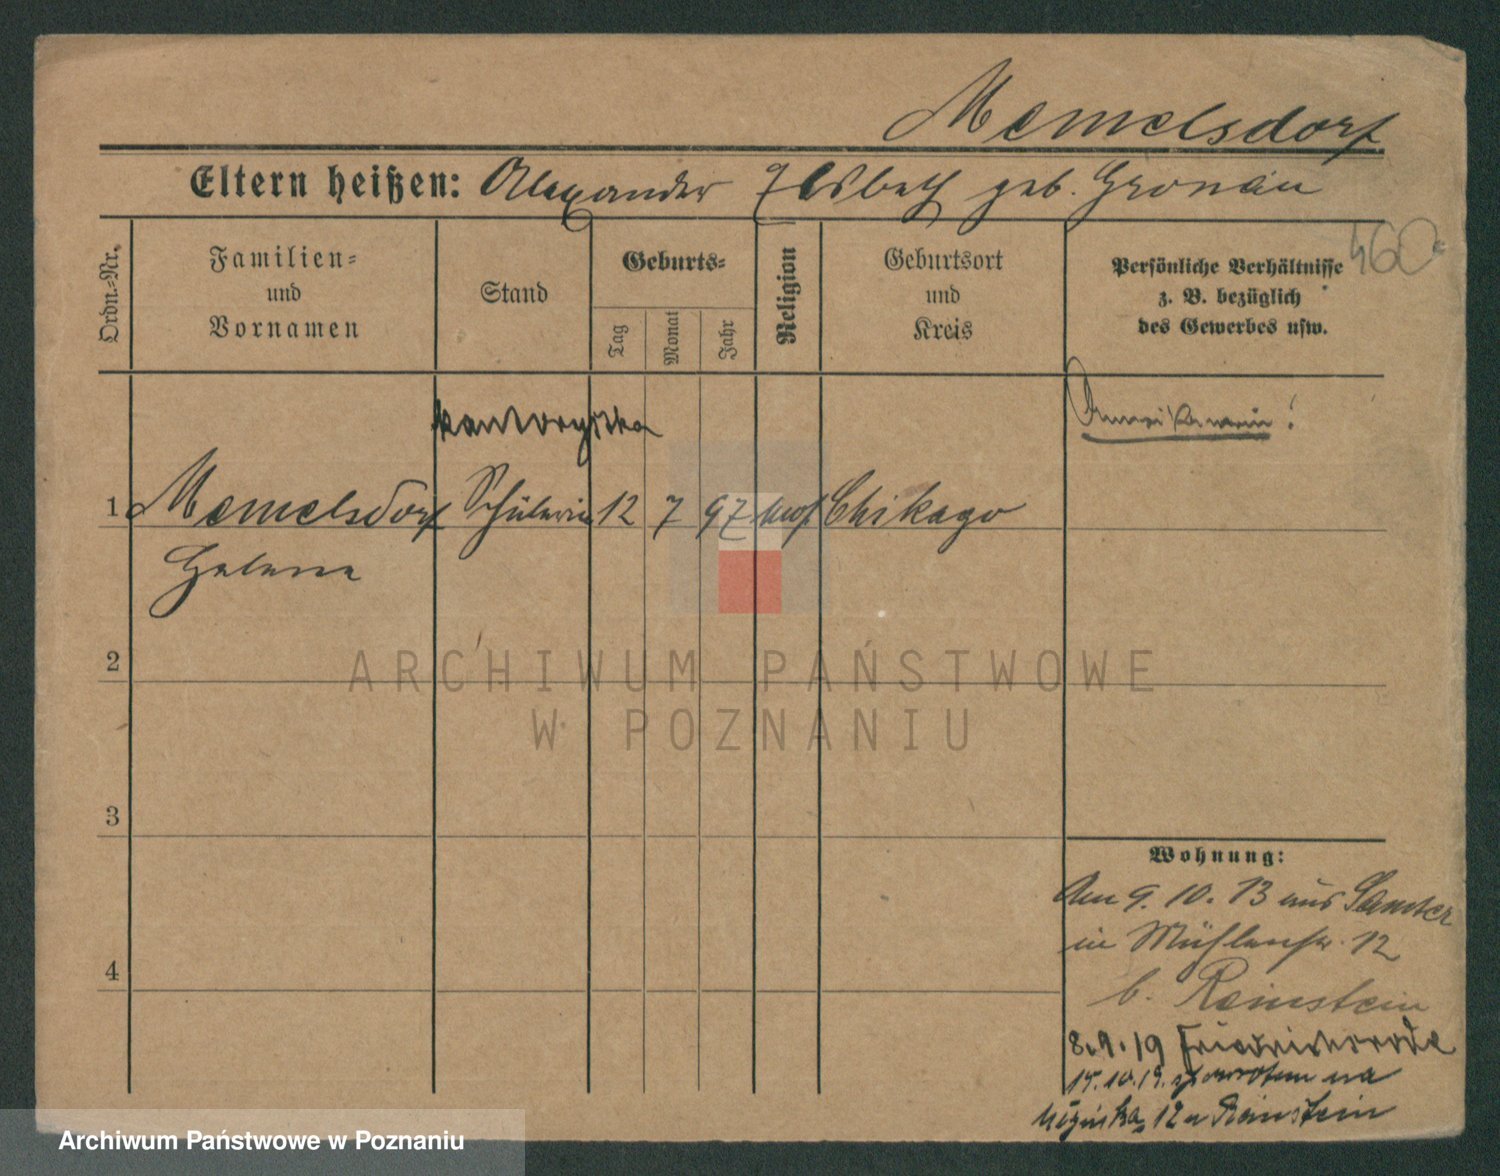 Memelsdorf
Eltern heißen: Alexander Elsbeth geb. Gronau
460
Ordn.-Nr.
Familien-
und
Vornamen
Stand
Geburts-
Tag
Monat
Jahr
Religion
Geburtsort
und
Kreis
Persönliche Verhältnisse
z. B. bezüglich
des Gewerbes usw.
kantorzystka
Amerikanerin!
1 Memelsdorf Schülerin 12 7 97 mos. Chikago
Helene
2
3
4
Wohnung:
Am 9. 10. 13 aus Samter
in Mühlenstr. 12
b. Reinstein
8.9.19 Friedrichsrode
15.10.19. z powrotem na
Młyńska 12 u Reinstein
ARCHIWUM PAŃSTWOWE
W POZNANIU
Archiwum Państwowe w Poznaniu